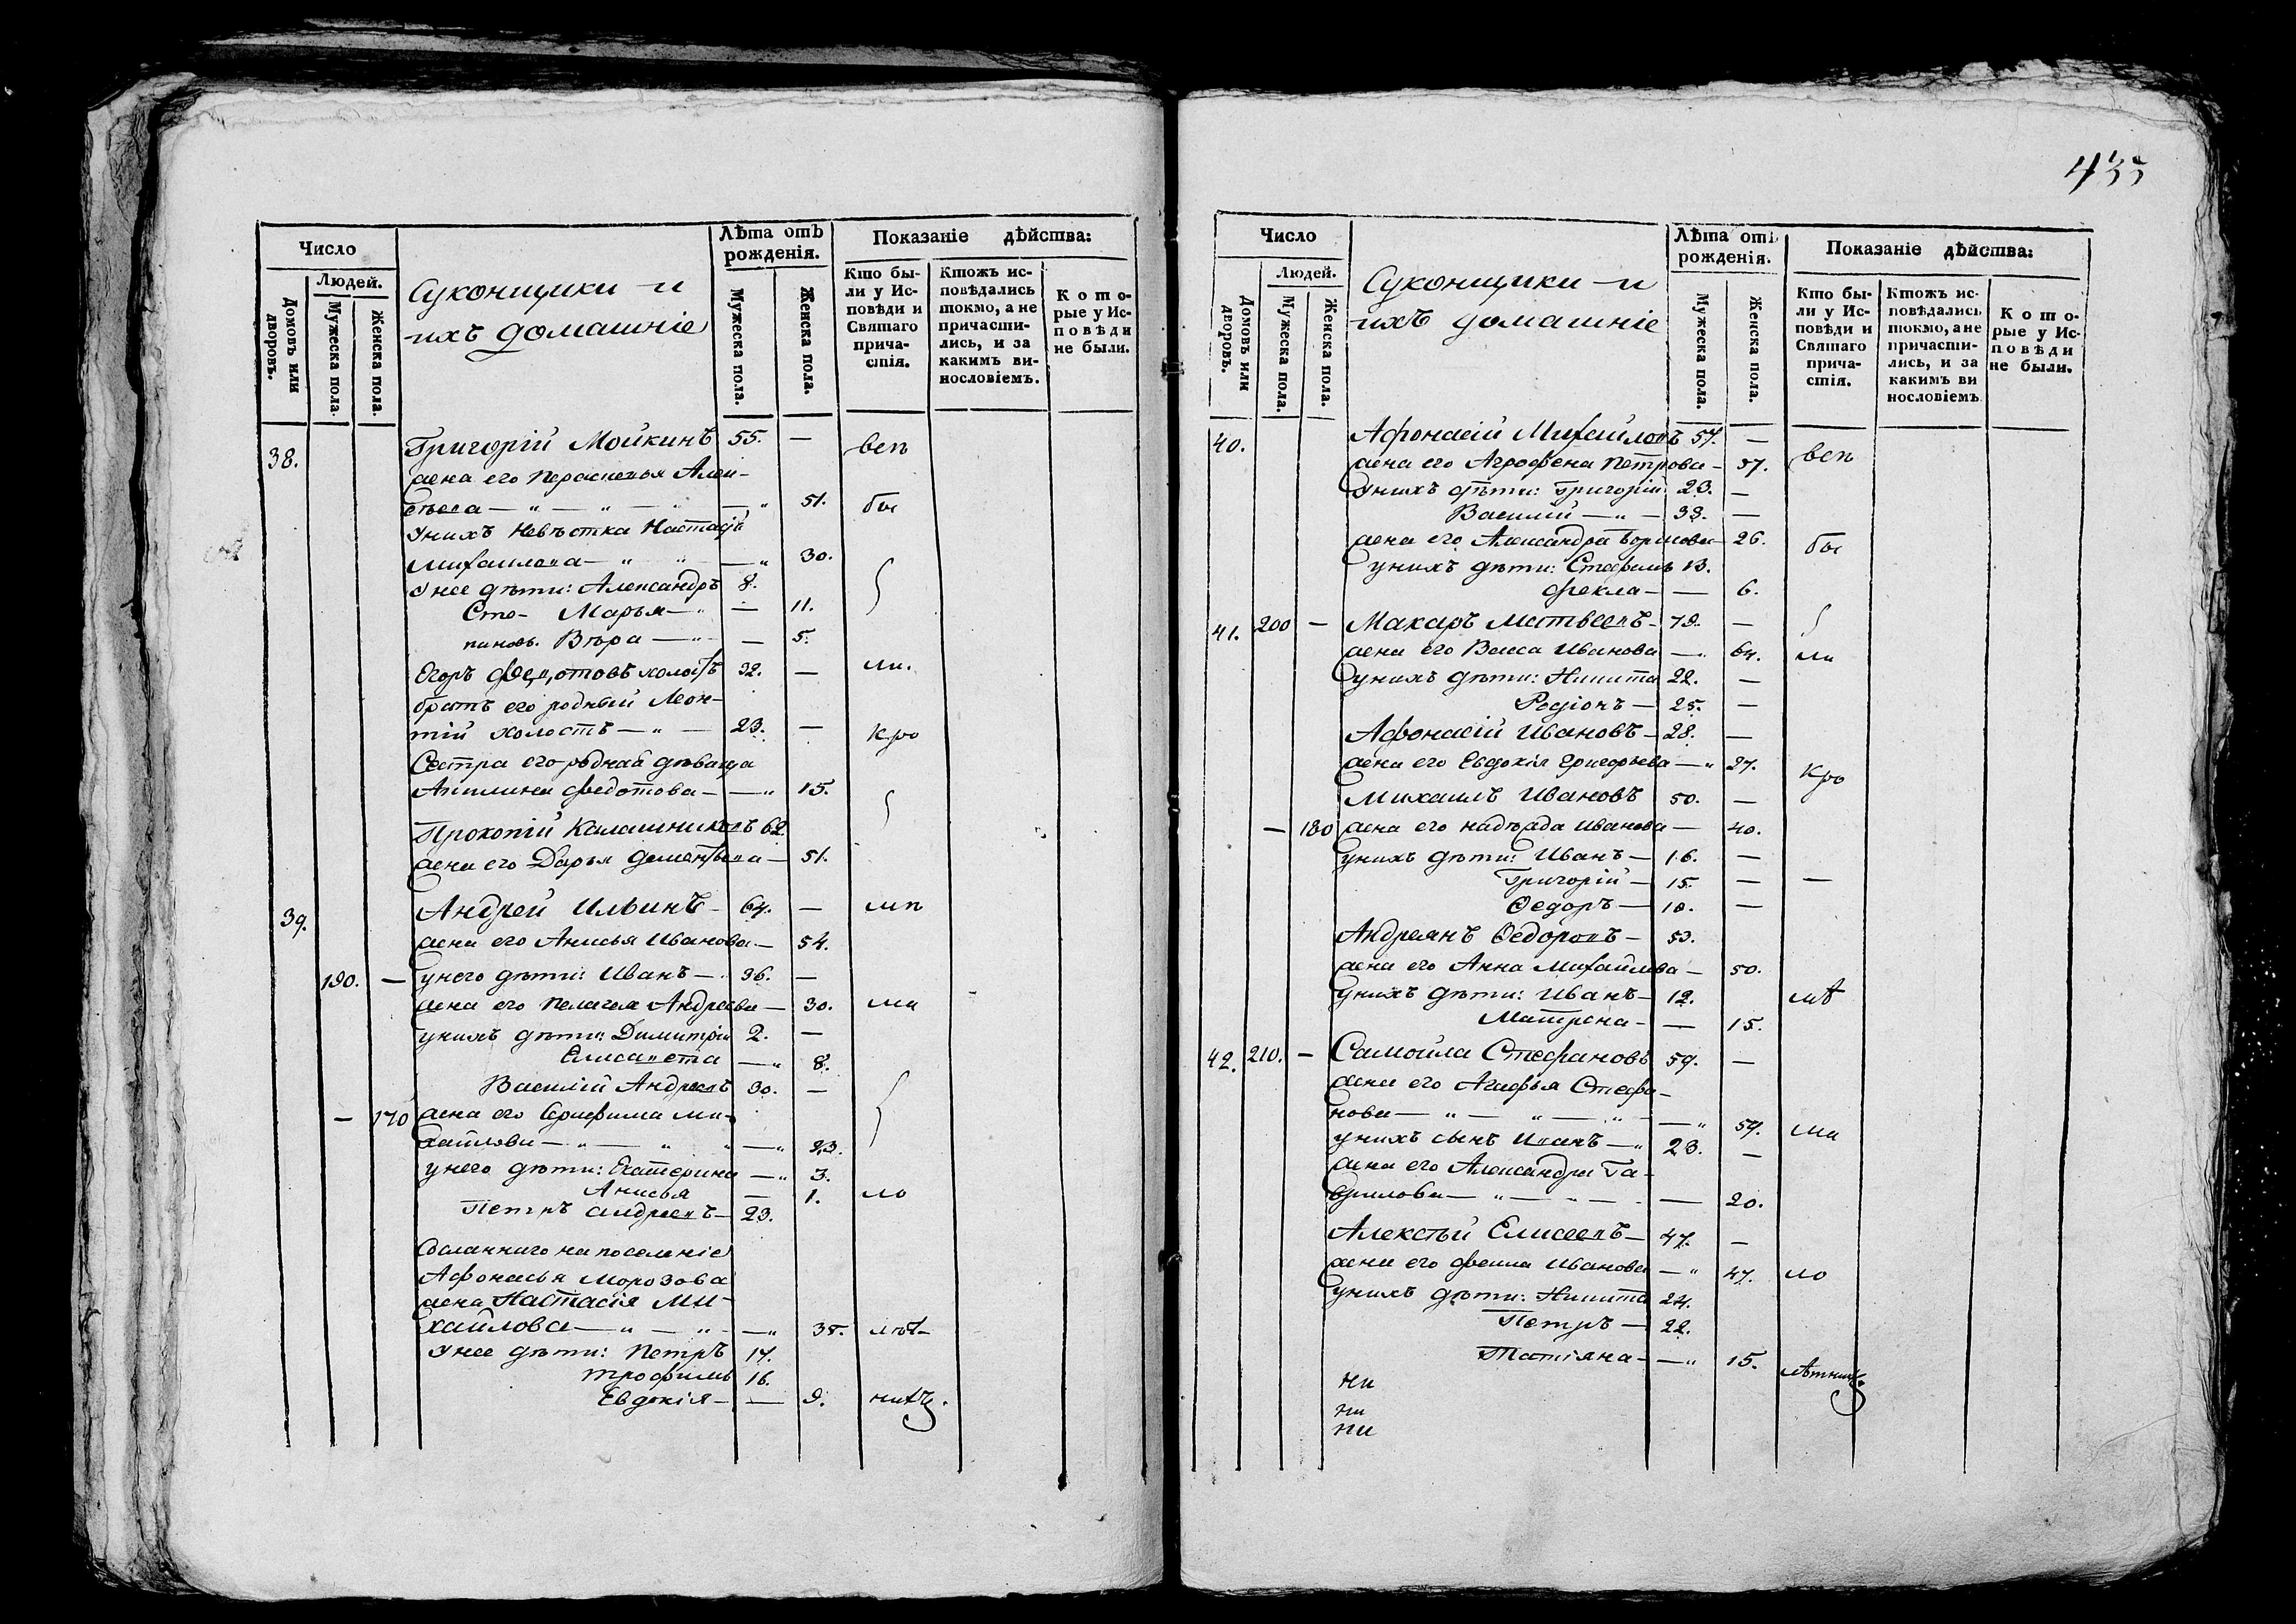 Число
Людей.
Домовъ или дворовъ.
Мужеска пола.
Женска пола.
Суконщики и
ихъ домашніе
Лѣта отъ
рожденія.
Мужеска пола.
Женска пола.
Показаніе дѣйства:
Кто бы-
ли у Ис-
повѣди и
Святаго
прича-
стія.
Ктожъ ис-
повѣдались
токмо, а не
причасти-
лись, и за
какимъ ви-
нословіемъ.
Кото-
рые у Ис-
повѣди
не были.
38. Григорій Мойкинъ 55. —
жена его Параскевья Алек-
сѣева — „ — „ — „ 51. бы
у нихъ невѣстка Настасія
Михаилова — „ — „ 30.
у нее дѣти: Александръ 8.
Сте- Марья — „ — 11.
пановъ. Вѣра — „ — 5.
Егоръ Федотовъ холостъ 32. —
братъ его родный Леон-
тій холостъ — „ — 23. — кро
Сестра его родная дѣвица
Акилина Федотова — — „ 15.
Прохопій Калашниковъ 62.
жена его Дарья Дементьева — 51.
39. Андрей Ильинъ — 64. —
жена его Анисья Иванова — 54.
190. — у него дѣти: Иванъ — 36. —
жена его Пелагея Андреева — 30. ма
у нихъ дѣти: Димитрій 2. —
Елисавета — „ 8.
Василій Андреевъ 30. —
— 170 жена его Серафима Ми-
хаилова — „ — „ „ — „ 23.
у него дѣти: Екатерина — „ 3.
Анисья — 1. ло
Петръ Андреевъ — 23.
Сосланнаго на поселеніе
Афонасья Морозова
жена Настасія Ми-
хайлова — „ — „ — „ 38. лѣт-
у нее дѣти: Петръ 17.
Трофимъ 16.
Евдокія — — 9.
435
Число
Людей.
Домовъ или дворовъ.
Мужеска пола.
Женска пола.
Суконщики и
ихъ домашніе
Лѣта отъ
рожденія.
Мужеска пола.
Женска пола.
Показаніе дѣйства:
Кто бы-
ли у Ис-
повѣди и
Святаго
прича-
стія.
Ктожъ ис-
повѣдались
токмо, а не
причасти-
лись, и за
какимъ ви
нословіемъ.
Кото-
рые у Ис-
повѣди
не были.
40. Афонасій Михайловъ 57. —
жена его Агрофена Петрова — 57.
у нихъ дѣти: Григорій 23. —
Василій — „ — 33. —
жена его Александра Борисова — 26. бы
у нихъ дѣти: Стефанъ 13.
Фекла — — 6.
41. 200 — Макаръ Матвеевъ — 79. —
жена его Васса Иванова — 64. ма
у нихъ дѣти: Никита 22. —
Родіонъ — 25. —
Афонасій Ивановъ — 28. —
жена его Евдокія Григорьева — „ 27. кро
Михаилъ Ивановъ 50. —
— 180 жена его Надѣжда Иванова — 40.
у нихъ дѣти: Иванъ — 16. —
Григорій — 15. — —
Ѳедоръ — 10. —
Андреянъ Ѳедоровъ — 53.
жена его Анна Михайлова — 50.
у нихъ дѣти: Иванъ — 12.
Матрена — — 15.
42. 210. — Самойла Стефановъ 59. —
жена его Агафья Стефа-
нова — „ — „ — „ — „ 59. ма
у нихъ сынъ Иванъ — „ 23. —
жена его Александра Га-
врилова — „ — „ — — 20.
Алексѣй Елисеевъ — 47. —
жена его Фекла Иванова — „ 47. ло
у нихъ дѣти: Никита 24.
Петръ — 22.
Татіяна — — „ 15.
ни
ни
ни